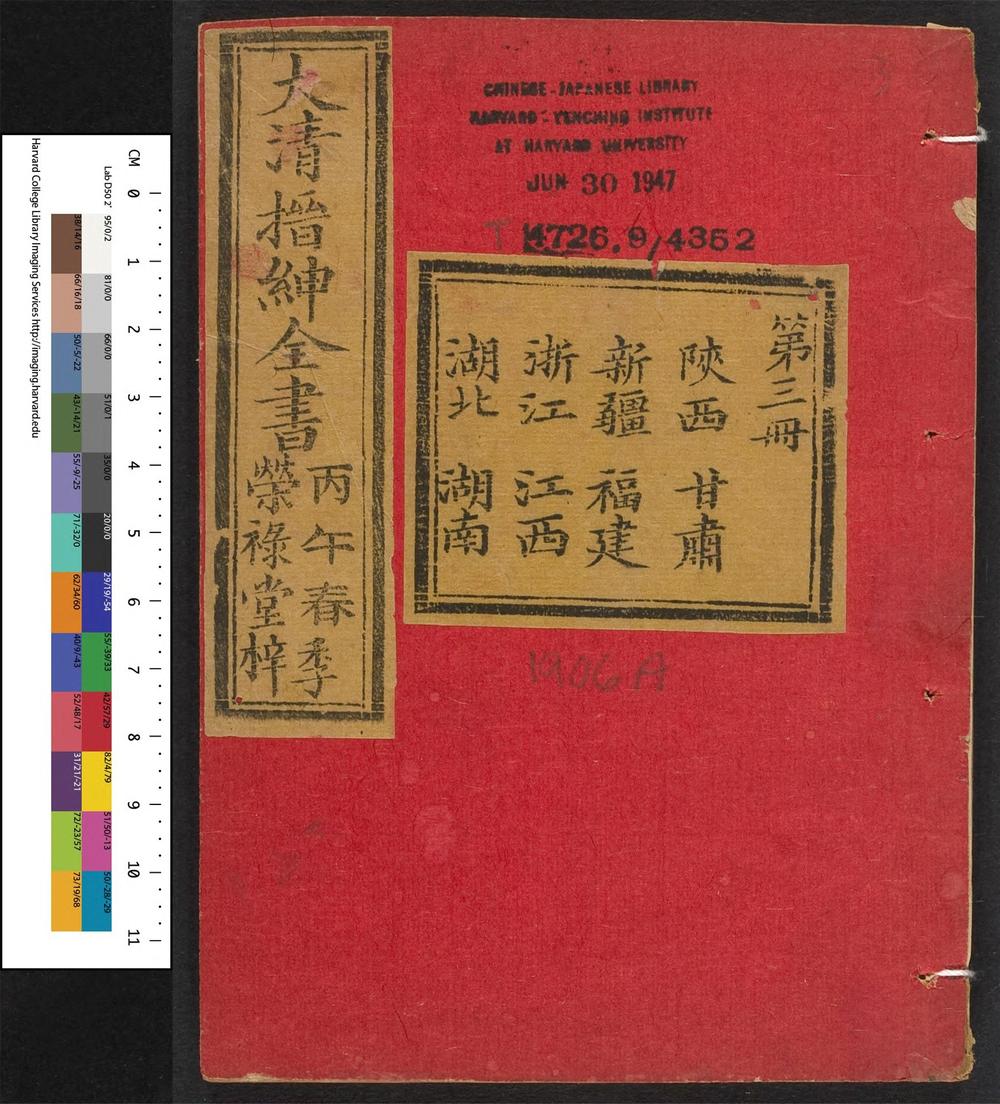 大清搢紳全書
丙午春季
榮祿堂梓
CHINESE-JAPANESE LIBRARY
HARVARD-YENCHING INSTITUTE
AT HARVARD UNIVERSITY
JUN 30 1947
T 4726.9/4352
第三冊
陝西 甘肅
新疆 福建
浙江 江西
湖北 湖南
1906 A
Harvard College Library Imaging Services http://imaging.harvard.edu
Lab D50 2°
CM 0 1 2 3 4 5 6 7 8 9 10 11
38/14/16
66/16/18
50/-5/-22
43/-14/21
55/-9/-25
71/-32/0
62/34/60
40/9/-43
52/48/17
31/21/-21
72/-23/57
73/19/68
95/0/2
81/0/0
66/0/0
51/0/1
35/0/0
20/0/0
29/19/-54
55/-39/33
42/57/29
82/4/79
51/50/-13
50/-28/-29